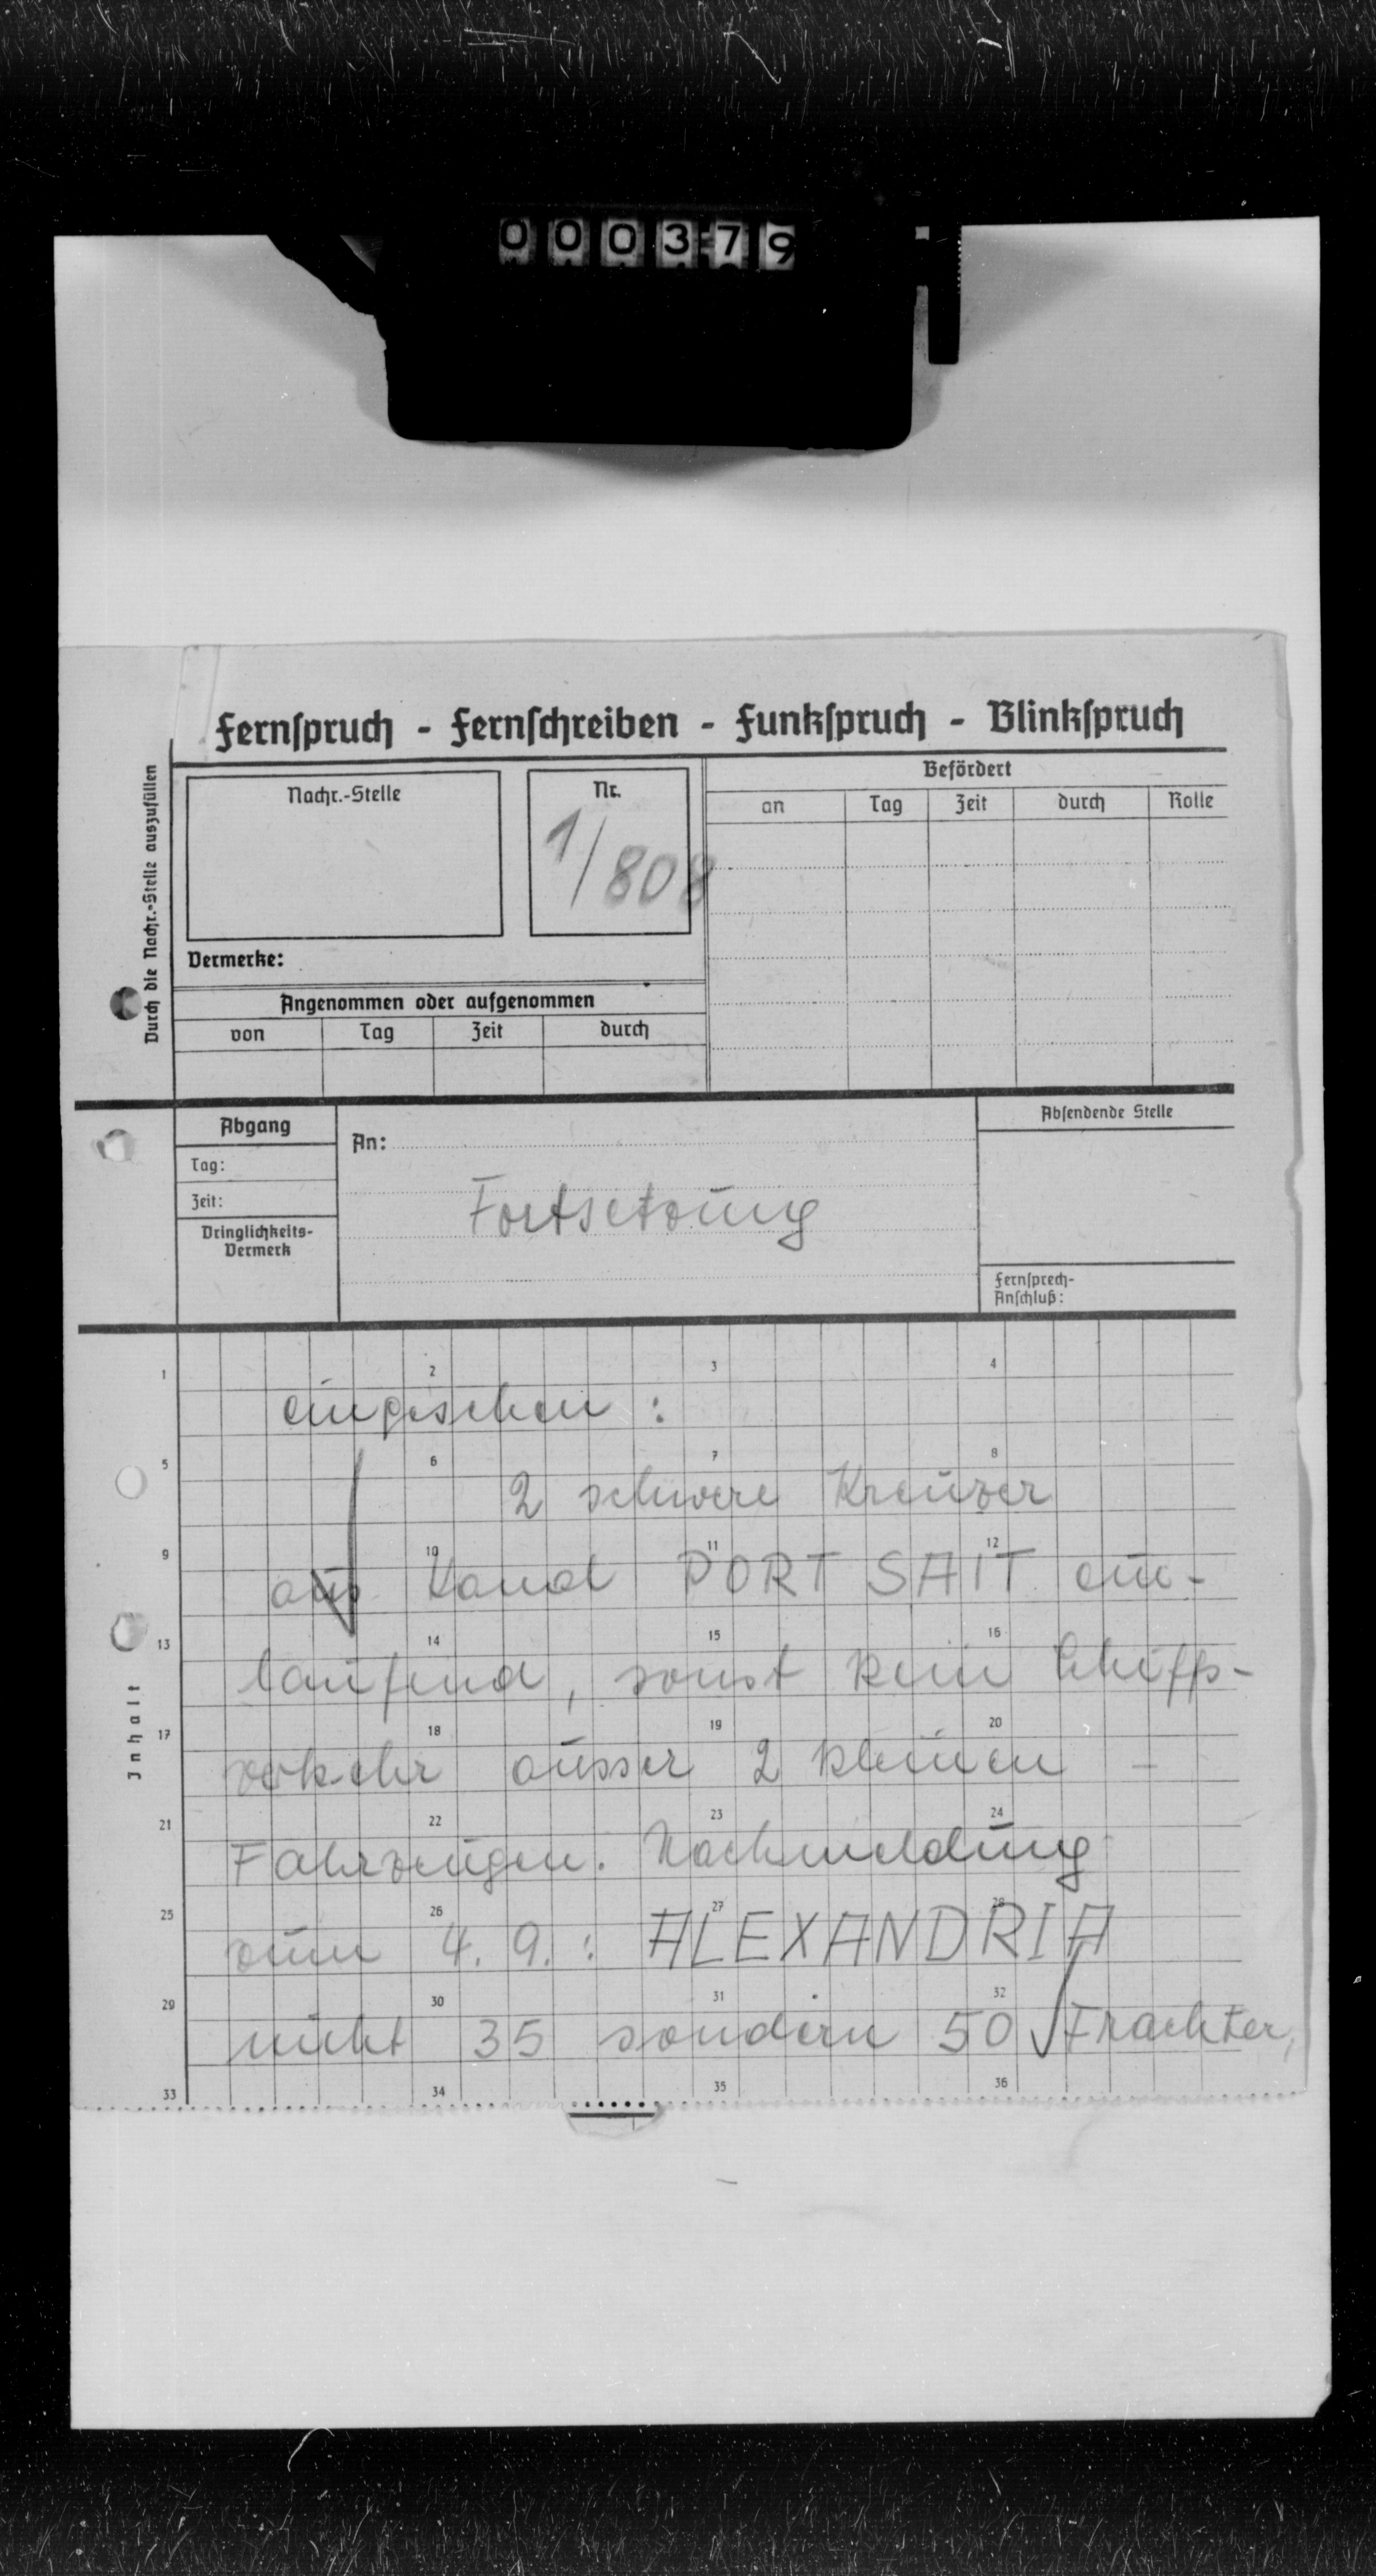 000379
Fernspruch - Fernschreiben - Funkspruch - Blinkspruch
Durch die Nachr.-Stelle auszufüllen
Nachr.-Stelle
Nr.
1/808
Befördert
an Tag Zeit durch Rolle
Vermerke:
Angenommen oder aufgenommen
von Tag Zeit durch
Abgang
Tag:
Zeit:
Dringlichkeits-
Vermerk
An:
Fortsetzung
Absendende Stelle
Fernsprech-
Anschluß:
Inhalt
1 2 3 4
eingesehen :
5 6 7 8
2 schwere Kreuzer
9 10 11 12
aus Kanal PORT SAIT ein-
13 14 15 16
laufend, sonst kein Schiffs-
17 18 19 20
verkehr ausser 2 kleinen -
21 22 23 24
Fahrzeugen. Nachmeldung
25 26 27 28
zum 4. 9. : ALEXANDRIA
29 30 31 32
nicht 35 sondern 50 Frachter,
33 34 35 36